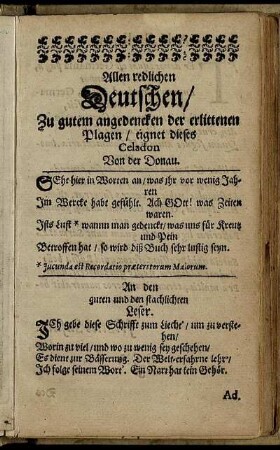 Allen redlichen
Deutschen/
Zu gutem angedencken der erlittenen
Plagen/ eignet dieses
Celadon
Von der Donau.
SEht hier in Worten an/ was ihr vor wenig Jah-
ren
Im Wercke habt gefühlt. Ach GOtt! was Zeiten
waren.
Ists Lust * wannn man gedenckt/ was uns für Kreutz
und Pein
Betroffen hat/ so wird diß Buch sehr lustig seyn.
* Jucunda est Recordatio præteritorum Malorum.
An den
guten und den stachlichten
Leser.
ICh gebe diese Schrifft zum Liecht'/ um zu verste-
hen/
Worin zu viel/ und wo zu wenig sey geschehen/
Es diene zur Bässerung. Der Welt-erfahrne lehr'/
Ich folge seinem Wort'. Ein Narr hat kein Gehör.
Ad.